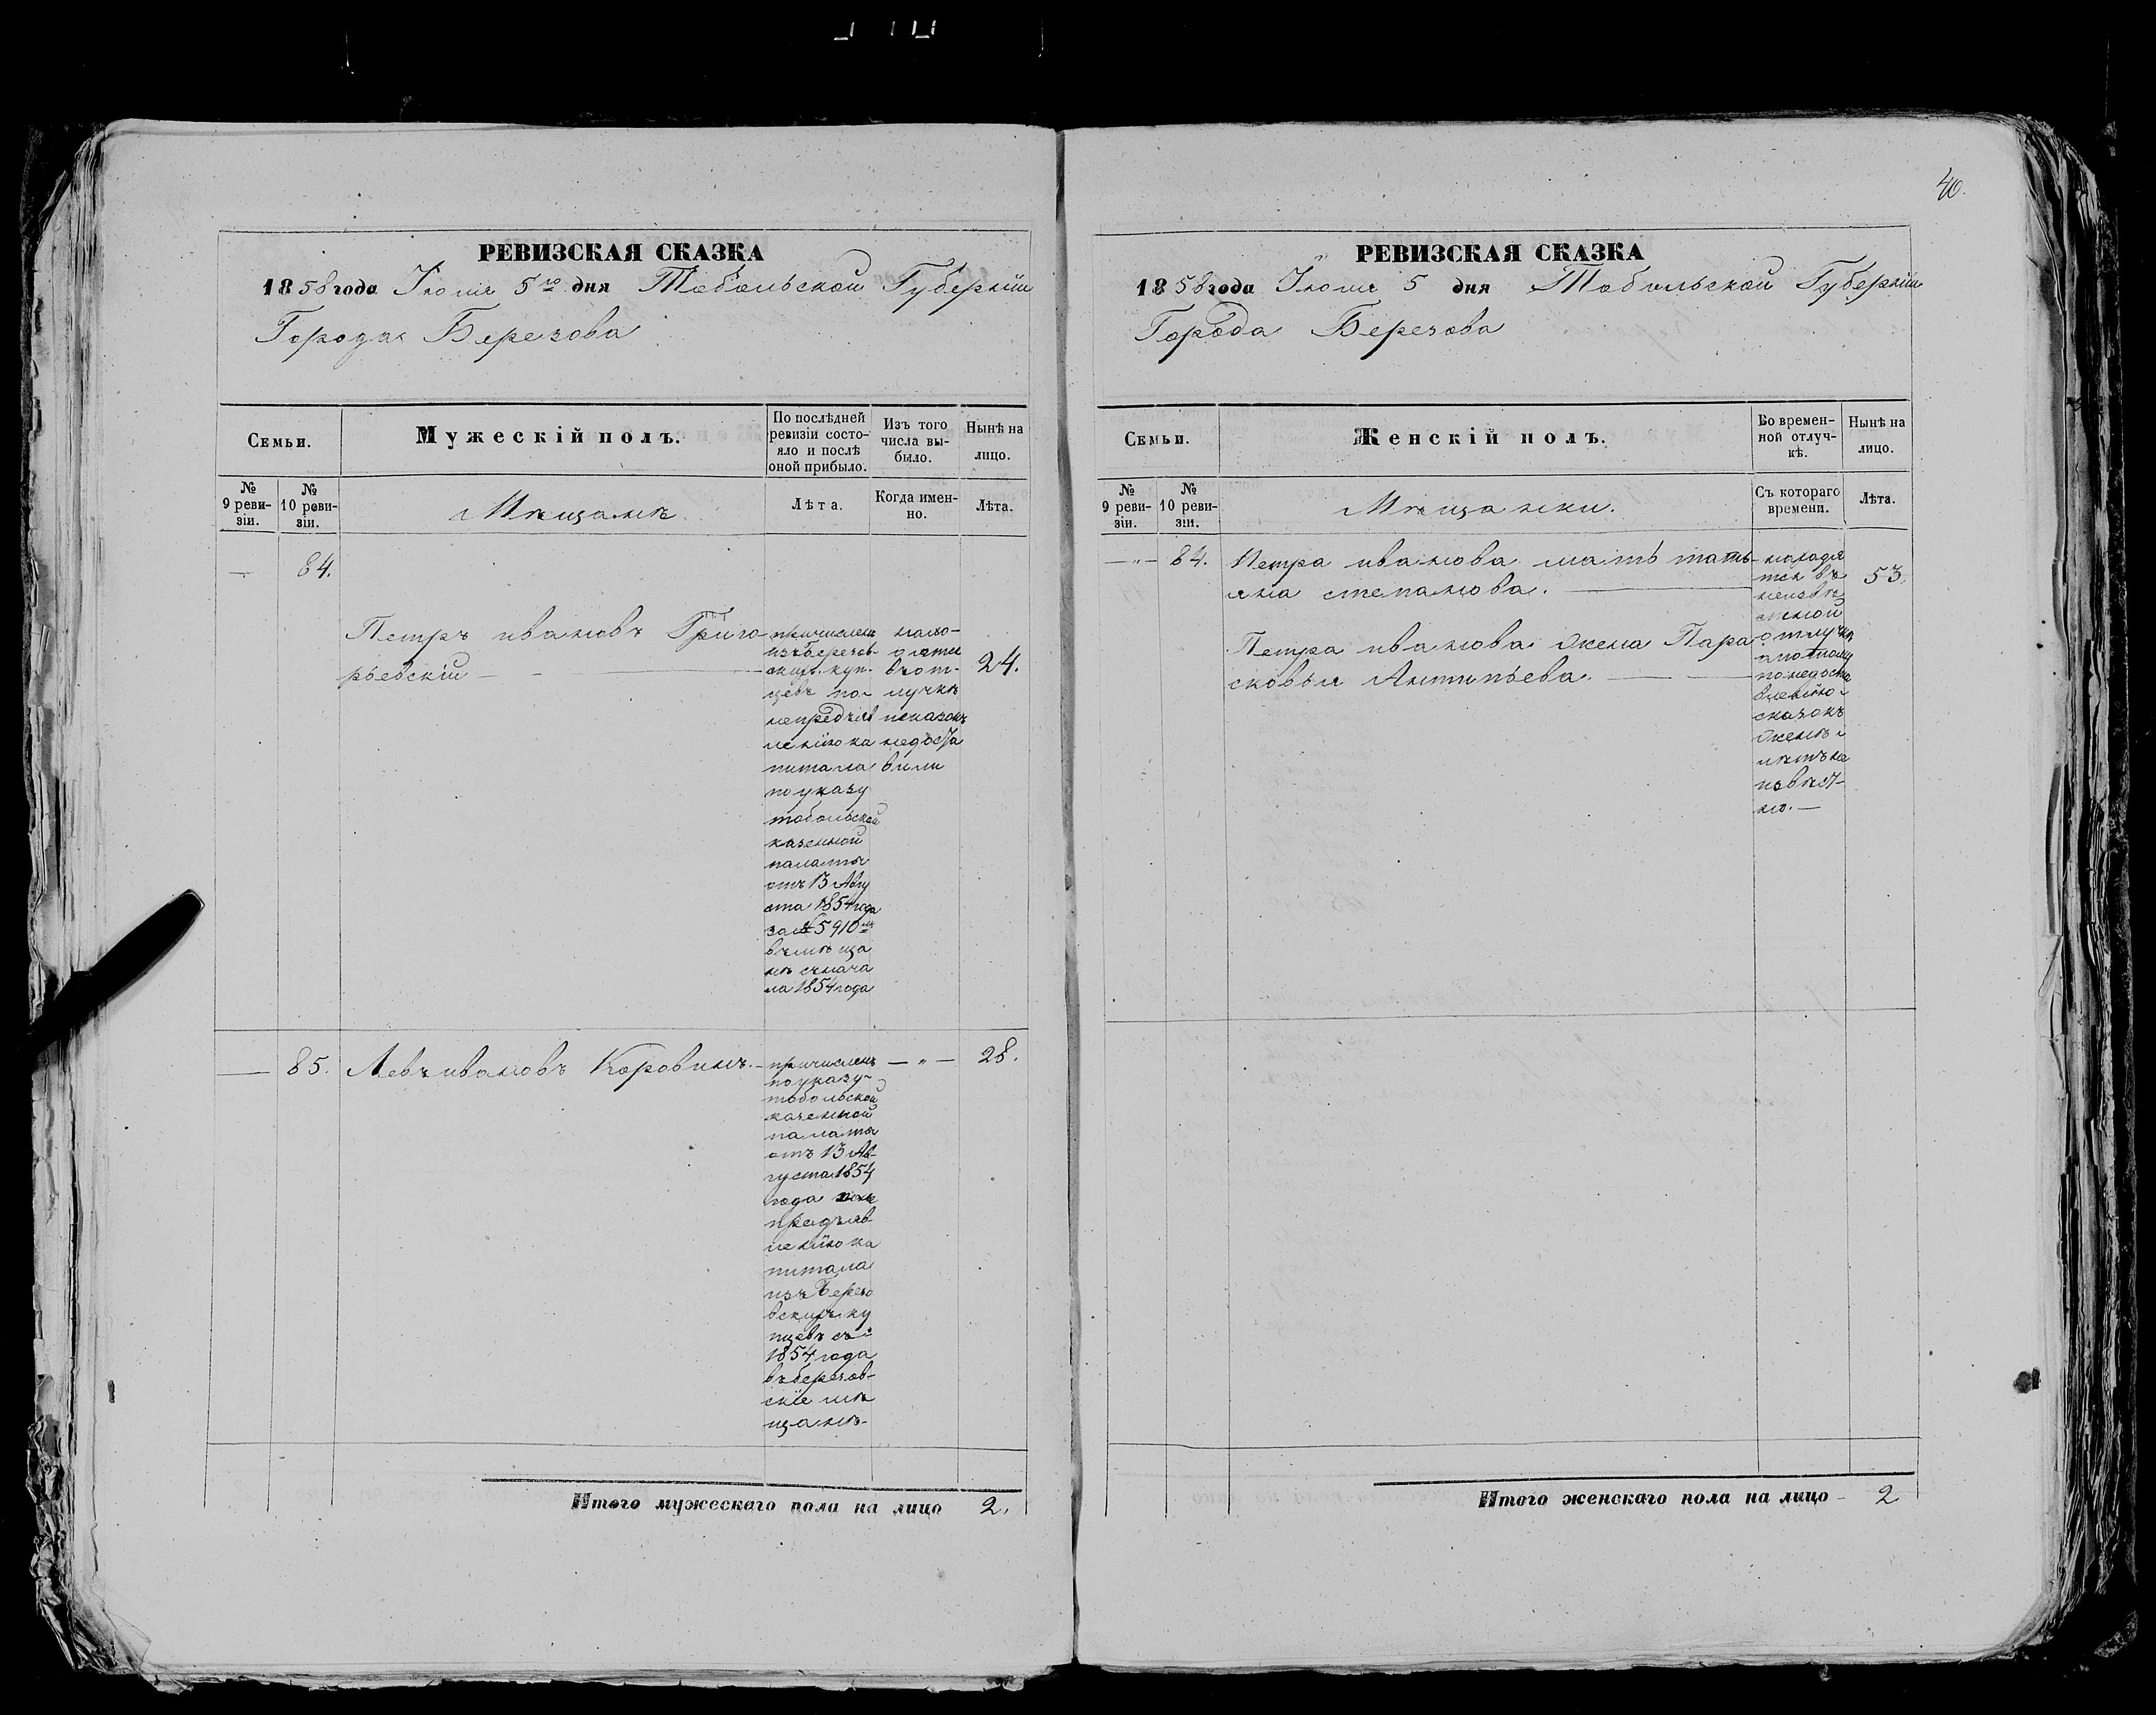 40.
РЕВИЗСКАЯ СКАЗКА
1858 года Июня 5го дня Тобольской Губерніи
Города Березова
Семьи.
Мужескій полъ.
По послѣдней
ревизіи состо-
яло и послѣ
оной прибыло.
Изъ того
числа вы-
было.
Нынѣ на
лицо.
№
9 реви-
зіи.
№
10 реви-
зіи.
Мѣщанѣ
Лѣта.
Когда имен-
но.
Лѣта.
— 84.
Петръ ивановъ Григо-
рьевскій
причисленъ
избрезов-
скихъ куп-
цевъ по
непредъяв
ленїю ка
питала
по указу
тобольской
казенной
палаты
отъ 13 Авгу
ста 1854 года
за № 5910м
въ мѣща
нѣ съ нача
ла 1854 года
нахо-
дятся
въ от-
лучкѣ
исказокъ
недоста
вили
24.
— 85. Левъ ивановъ Коровинъ.
причисленъ
по указу
тобольской
казенной
палаты
отъ 13 Ав-
густа 1854
года по не
предъяв-
ленїю ка
питала
изъ Березо
вскихъ ку
пцевъ съ
1854 года
въ березов-
скїе мѣ
щанѣ.
— „ —
28.
Итого мужескаго пола на лицо 2.
РЕВИЗСКАЯ СКАЗКА
1858 года Июня 5 дня Тобольской Губерніи
Города Березова
Семьи.
Женскій полъ.
Во времен-
ной отлуч-
кѣ.
Нынѣ на
лицо.
№
9 реви-
зіи.
№
10 реви-
зіи.
Мѣщанки.
Съ котораго
времени.
Лѣта.
— „ — 84. Петра иванова мать тать-
яна степанова.
Петра иванова жена Пара
сковья Антипьева.
находя
тся въ
неизвѣ
стной
отлучкѣ
а потому
по недоста
вленїю
сказокъ
женѣ
лѣтъ не
извѣст-
но. —
53.
Итого женскаго пола на лицо 2